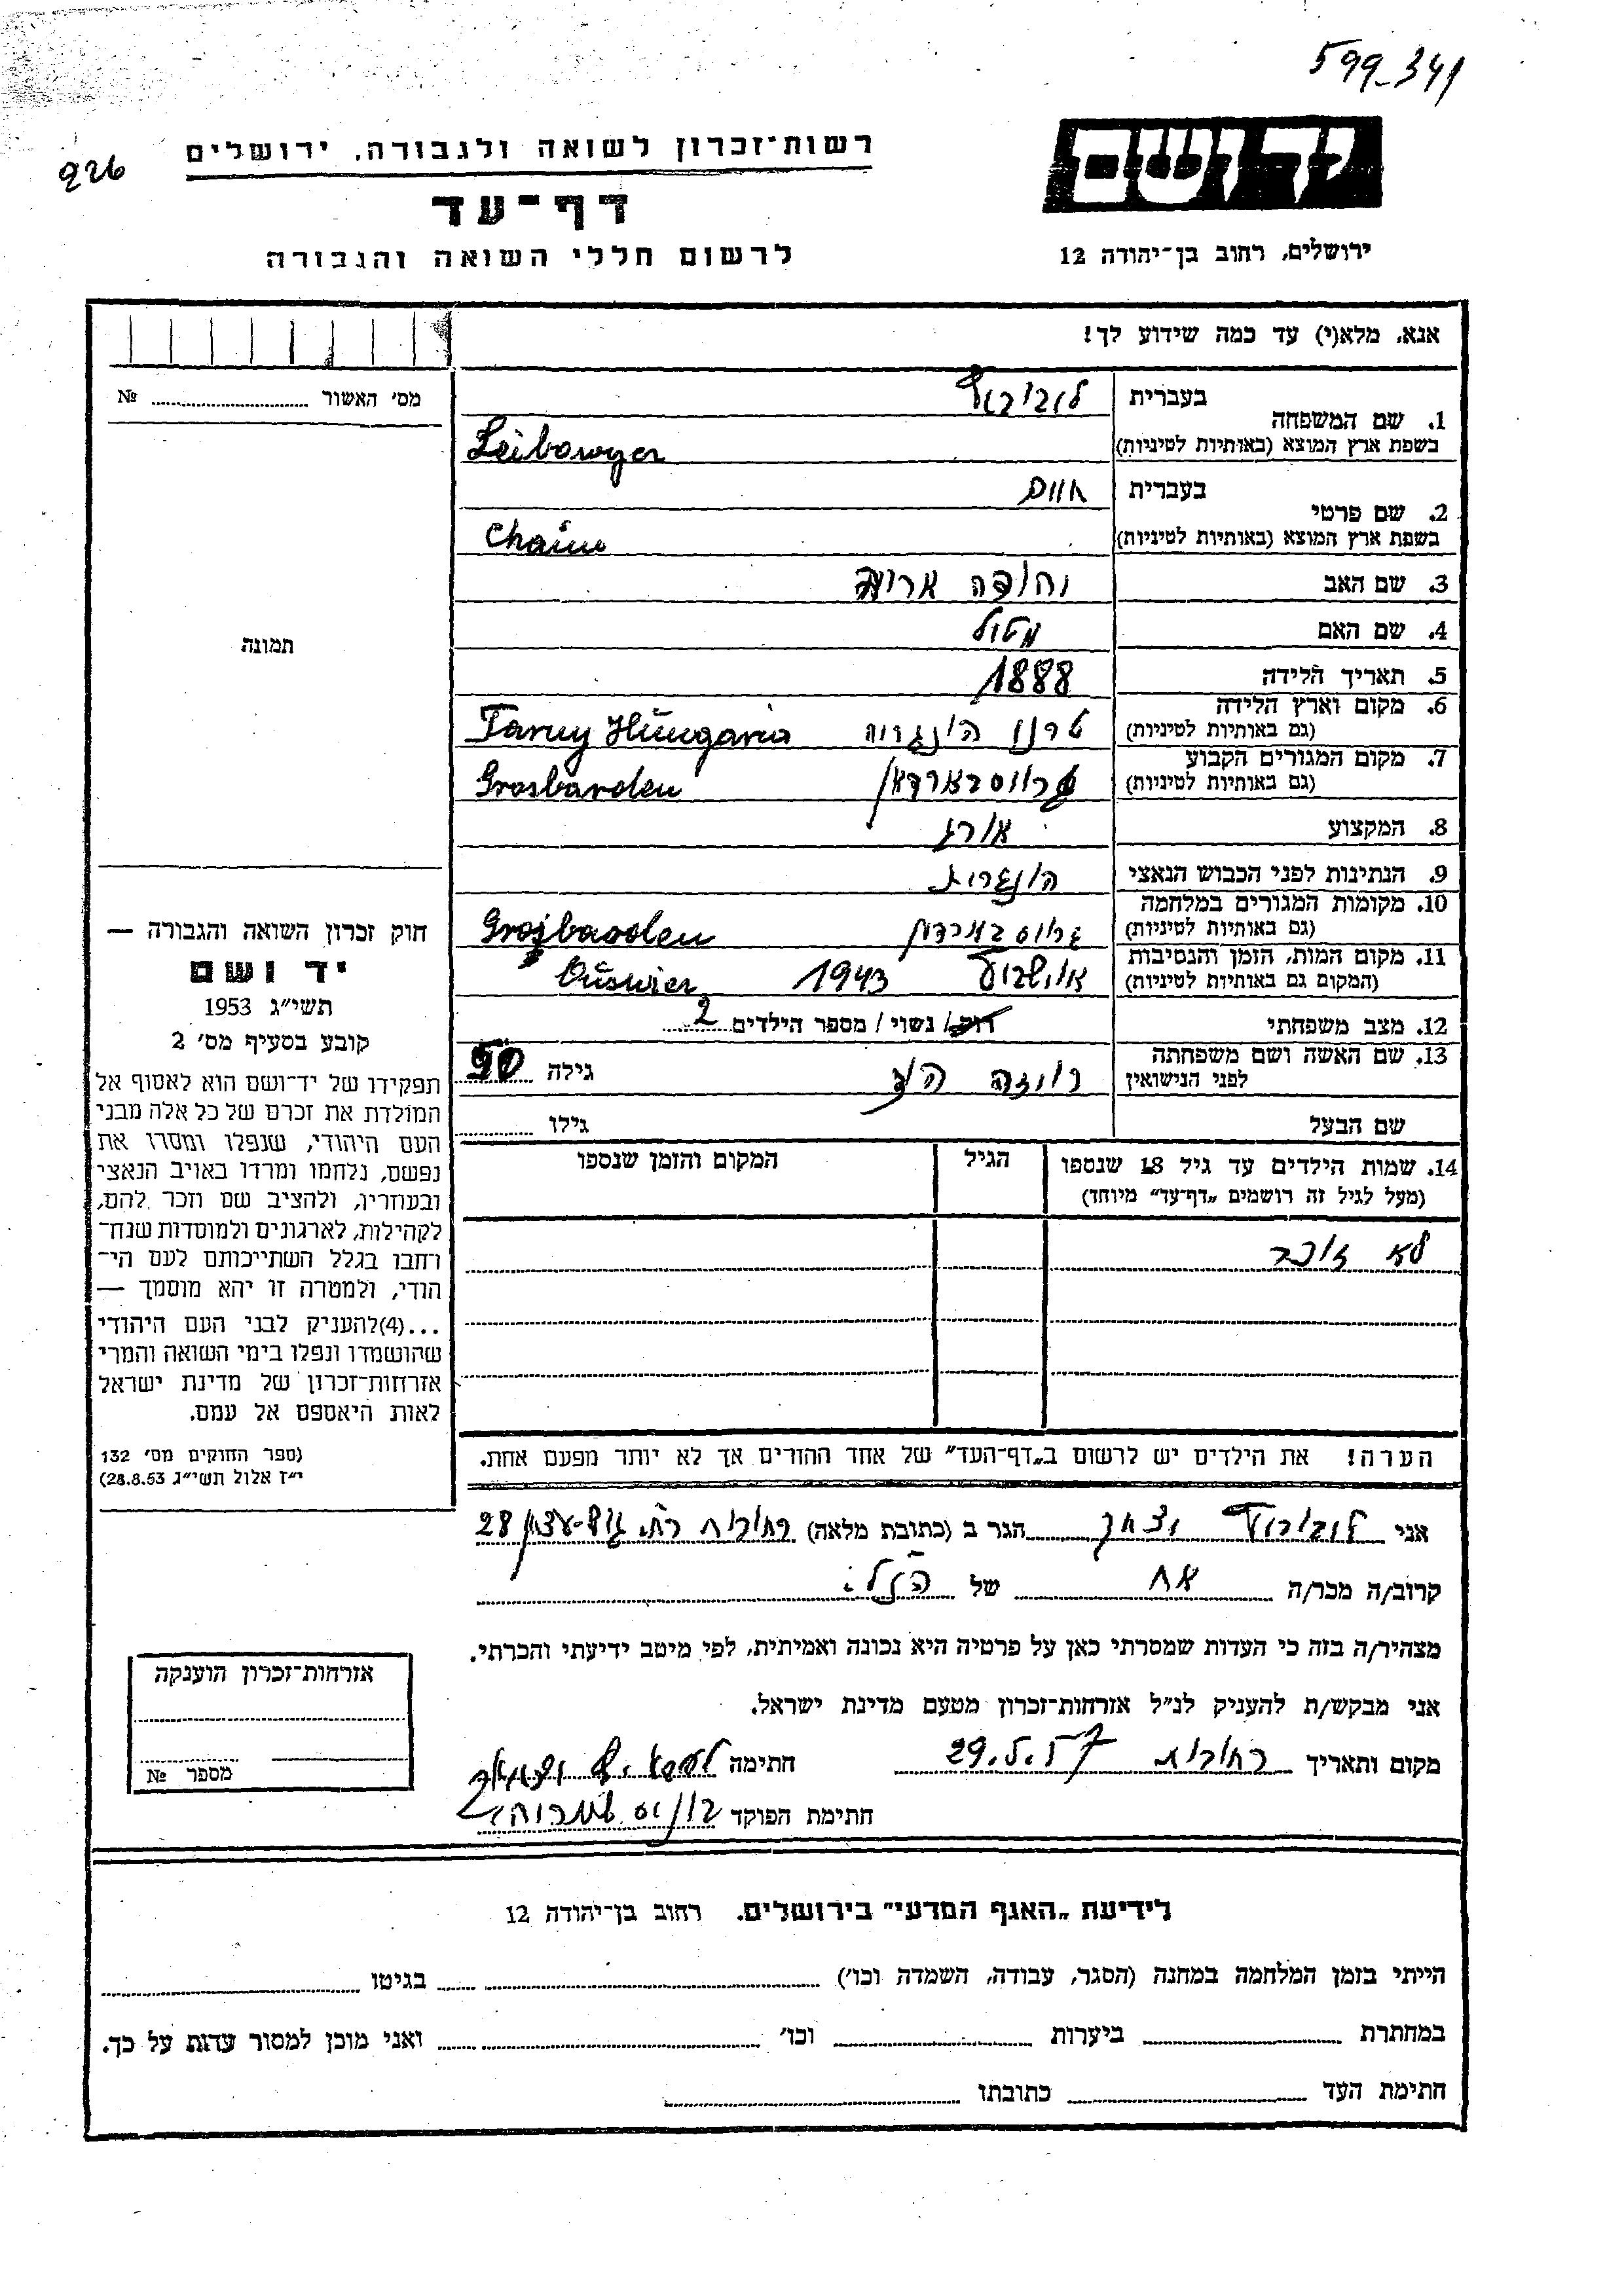 599-341
226
רשות-זכרון לשואה ולגבורה, ירושלים
יד ושם
דף-עד
לרשום חללי השואה והגבורה
ירושלים, רחוב בן-יהודה 12
אנא, מלא(י) עד כמה שידוע לך!
מס׳ האשור № 
תמונה
1. שם המשפחה
בעברית
בשפת ארץ המוצא (באותיות לטיניות)
2. שם פרטי
בעברית חיים
בשפת ארץ המוצא (באותיות לטיניות) Chaim
3. שם האב יהודה אריה
4. שם האם
5. תאריך הלידה 1888
6. מקום וארץ הלידה
(גם באותיות לטיניות) הונגריה Hungaria
7. מקום המגורים הקבוע
(גם באותיות לטיניות) גרוסבארדאן Grosbarden
8. המקצוע
9. הנתינות לפני הכבוש הנאצי הונגרית
10. מקומות המגורים במלחמה
(גם באותיות לטיניות) גרוסברדן
11. מקום המות, הזמן והנסיבות
(המקום גם באותיות לטיניות) 1943
12. מצב משפחתי רוק / נשוי / מספר הילדים 2
13. שם האשה ושם משפחתה
לפני הנישואין גילה 50
שם הבעל גילו
14. שמות הילדים עד גיל 18 שנספו
(מעל לגיל זה רושמים „דף-עד״ מיוחד)
הגיל
המקום והזמן שנספו
לא זוכר
הערה! את הילדים יש לרשום ב„דף-העד״ של אחד ההורים אך לא יותר מפעם אחת.
חוק זכרון השואה והגבורה —
יד ושם
תשי״ג 1953
קובע בסעיף מס׳ 2
תפקידו של יד-ושם הוא לאסוף אל
המולדת את זכרם של כל אלה מבני
העם היהודי, שנפלו ומסרו את
נפשם, נלחמו ומרדו באויב הנאצי
ובעוזריו, ולהציב שם וזכר להם,
לקהילות, לארגונים ולמוסדות שנח-
רבו בגלל השתייכותם לעם הי-
הודי, ולמטרה זו יהא מוסמך —
...(4)להעניק לבני העם היהודי
שהושמדו ונפלו בימי השואה והמרי
אזרחות-זכרון של מדינת ישראל
לאות היאספם אל עמם.
(ספר החוקים מס׳ 132
י״ז אלול תשי״ג 28.8.53)
אני יצחק הגר ב (כתובת מלאה) רחובות רח. גוש-עציון 28
קרוב/ה מכר/ה אח של הנ״ל
מצהיר/ה בזה כי העדות שמסרתי כאן על פרטיה היא נכונה ואמיתית, לפי מיטב ידיעתי והכרתי.
אני מבקש/ת להעניק לנ״ל אזרחות-זכרון מטעם מדינת ישראל.
מקום ותאריך רחובות 29.5.57 חתימה
חתימת הפוקד
אזרחות-זכרון הוענקה
מספר №
לידיעת „האגף המדעי״ בירושלים, רחוב בן-יהודה 12
הייתי בזמן המלחמה במחנה (הסגר, עבודה, השמדה וכו׳) בגיטו
במחתרת ביערות וכו׳ ואני מוכן למסור עדות על כך.
חתימת העד כתובתו